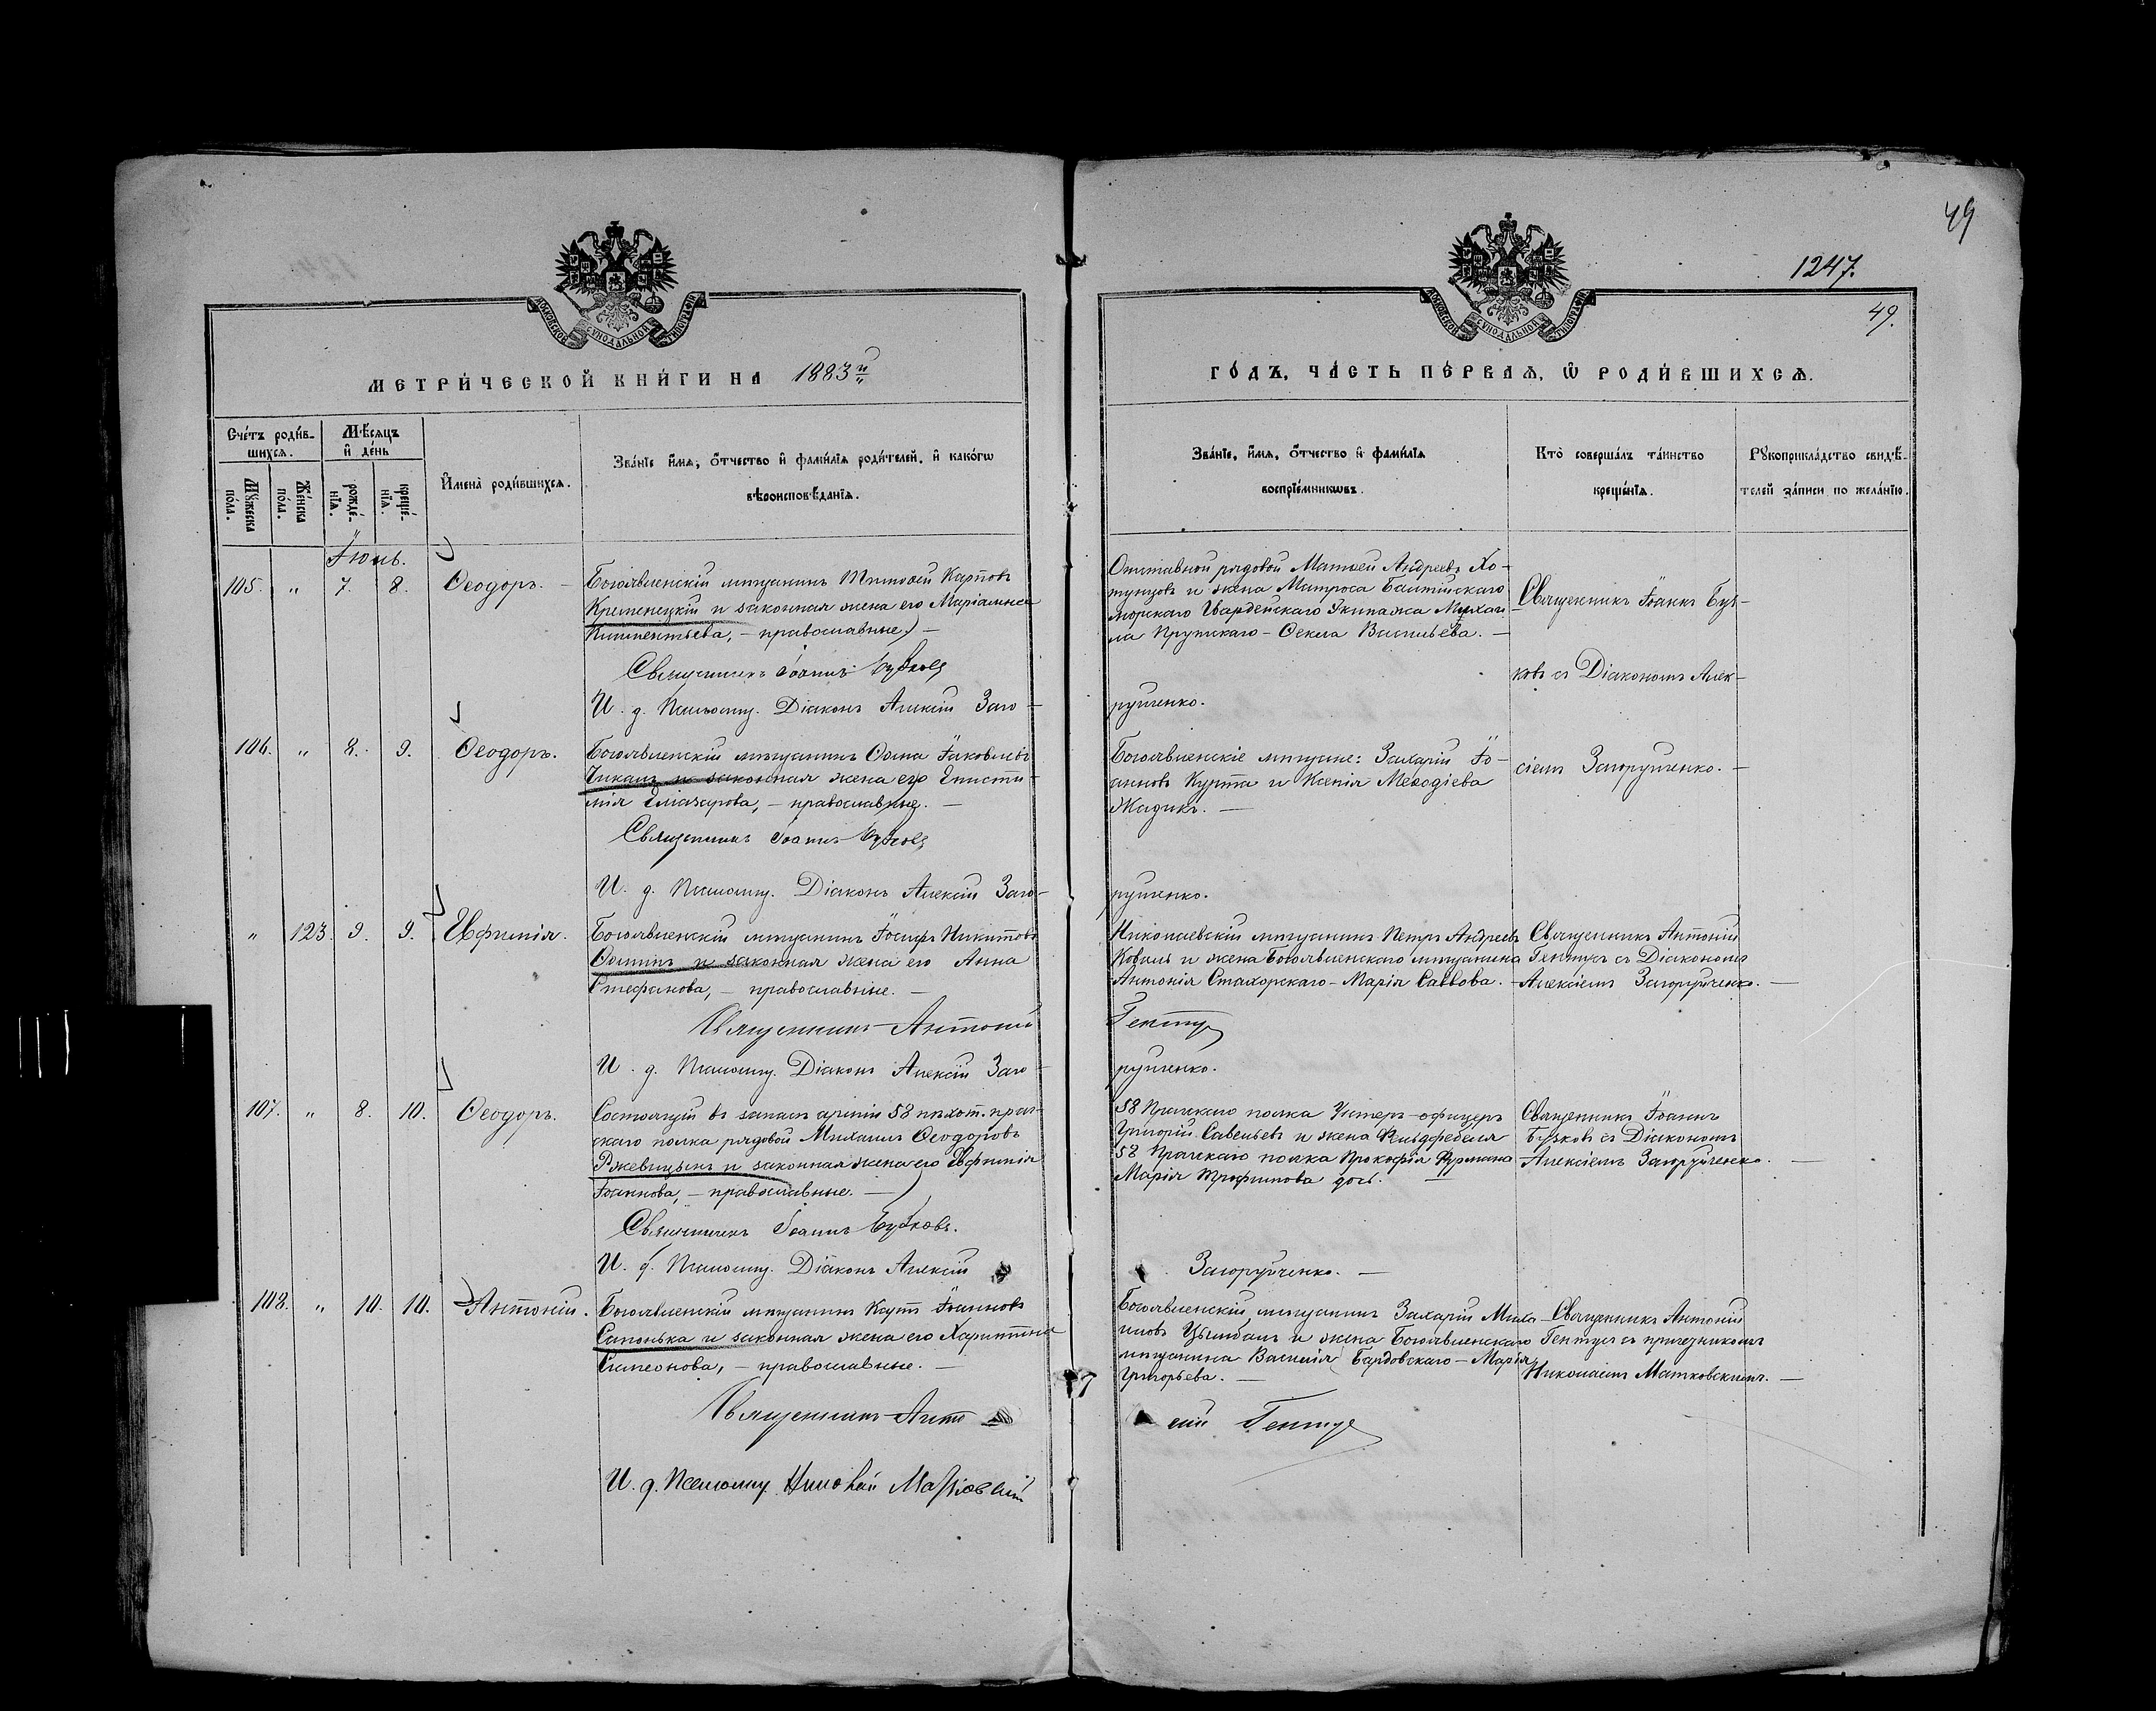 49
1247.
49.
МОСКОВСКОЙ СѴНОДАЛЬНОЙ ТИПОГРАФІИ
МОСКОВСКОЙ СѴНОДАЛЬНОЙ ТИПОГРАФІИ
МЕТРИ́ЧЕСКОЙ КНИ́ГИ НА 1883й
ГО́ДЪ, ЧА́СТЬ ПЕ́РВАѦ, Ѡ҆ РОДИ́ВШИХСѦ.
Сче́тъ роди́в-
шихсѧ.
Мѣ́сѧцъ
и҆ де́нь
Мꙋ́жеска
по́ла.
Же́нска
по́ла.
рожде́-
нїѧ.
креще́-
нїѧ.
И҆мена̀ роди́вшихсѧ.
Зва́нїе и҆́мѧ, ѻ҆́тчество и҆ фами́лїѧ роди́телей, и҆ како́гѡ
вѣроисповѣ́данїѧ.
Зва́нїе, и҆́мѧ, ѻ҆́тчество и҆ фами́лїѧ
воспрїе́мникѡвъ.
Кто̀ соверша́лъ та́инство
креще́нїѧ.
Рꙋкоприкла́дство свидѣ́-
телей за́писи по жела́нїю.
Іюнь.
105. " 7. 8. Ѳеодоръ. –
Богоявленскій мѣщанинъ Тимоѳей Карповъ
Кременецкій и законная жена его Маріамна
Климентьева, – православные. –
Священникъ Іоаннъ Бужовъ
И. д. Псаломщ. Діаконъ Алексій Заго-
Отставной рядовой Матѳей Андреевъ Хо-
тунцовъ и жена Матроса Балтійскаго
морскаго Гвардейскаго Экипажа Михаи-
ла Прутскаго – Ѳекла Васильева. –
руйченко.
Священникъ Іоаннъ Буж-
ковъ съ Діакономъ Алек-
сіемъ Загоруйченко. –
106. " 8. 9. Ѳеодоръ.
Богоявленскій мѣщанинъ Ѳома Іаковлевъ
Чикалъ и законная жена его Еписти-
мія Елиазарова, – православные. –
Священникъ Іоаннъ
И. д. Псаломщ. Діаконъ Алексій Заго-
Богоявленскіе мѣщане: Захарій Іо-
анновъ Курта и Ксенія Меѳодіева
Жадикъ. –
руйченко.
" 123. 9. 9. Евфимія.
Богоявленскій мѣщанинъ Іосифъ Никитовъ
и законная жена его Анна
Стефанова, – православные. –
Священникъ Антоній
И. д. Псаломщ. Діаконъ Алексій Заго-
Николаевскій мѣщанинъ Петръ Андреевъ
Коваль и жена Богоявленскаго мѣщанина
Антонія Стахорскаго – Марія Саввова. –
Гентуз
руйченко.
Священникъ Антоній
съ Діакономъ
Алексіемъ Загоруйченко. –
107. " 8. 10. Ѳеодоръ.
Состоящій въ запасѣ арміи 58 пѣхот. праж-
скаго полка рядовой Михаилъ Ѳеодоровъ
Ржевицынъ и законная жена его Евфимія
Іоаннова, – православные. –
Священникъ Іоаннъ
И. д. Псаломщ. Діаконъ Алексій
58 Пражскаго полка Унтеръ-офицеръ
Григорій Савельевъ и жена Фельдфебеля
58 Пражскаго полка Прокофія Фурмана
Марія Трофимова дочь.
Загоруйченко. –
Священникъ Іоаннъ
съ Діакономъ
Алексіемъ Загоруйченко. –
108. " 10. 10. Антоній.
Богоявленскій мѣщанинъ Карпъ Іоанновъ
Сапонька и законная жена его Харитина
Симеонова, – православные. –
Священникъ Анто
И. д. Псаломщ. Николай Матковскій
Богоявленскій мѣщанинъ Захарій Миха-
иловъ Цымбалъ и жена Богоявленскаго
мѣщанина Василія Бардовскаго – Марія
Григорьева. –
ній
Священникъ Антоній
съ причетникомъ
Николаемъ Матковскимъ. –